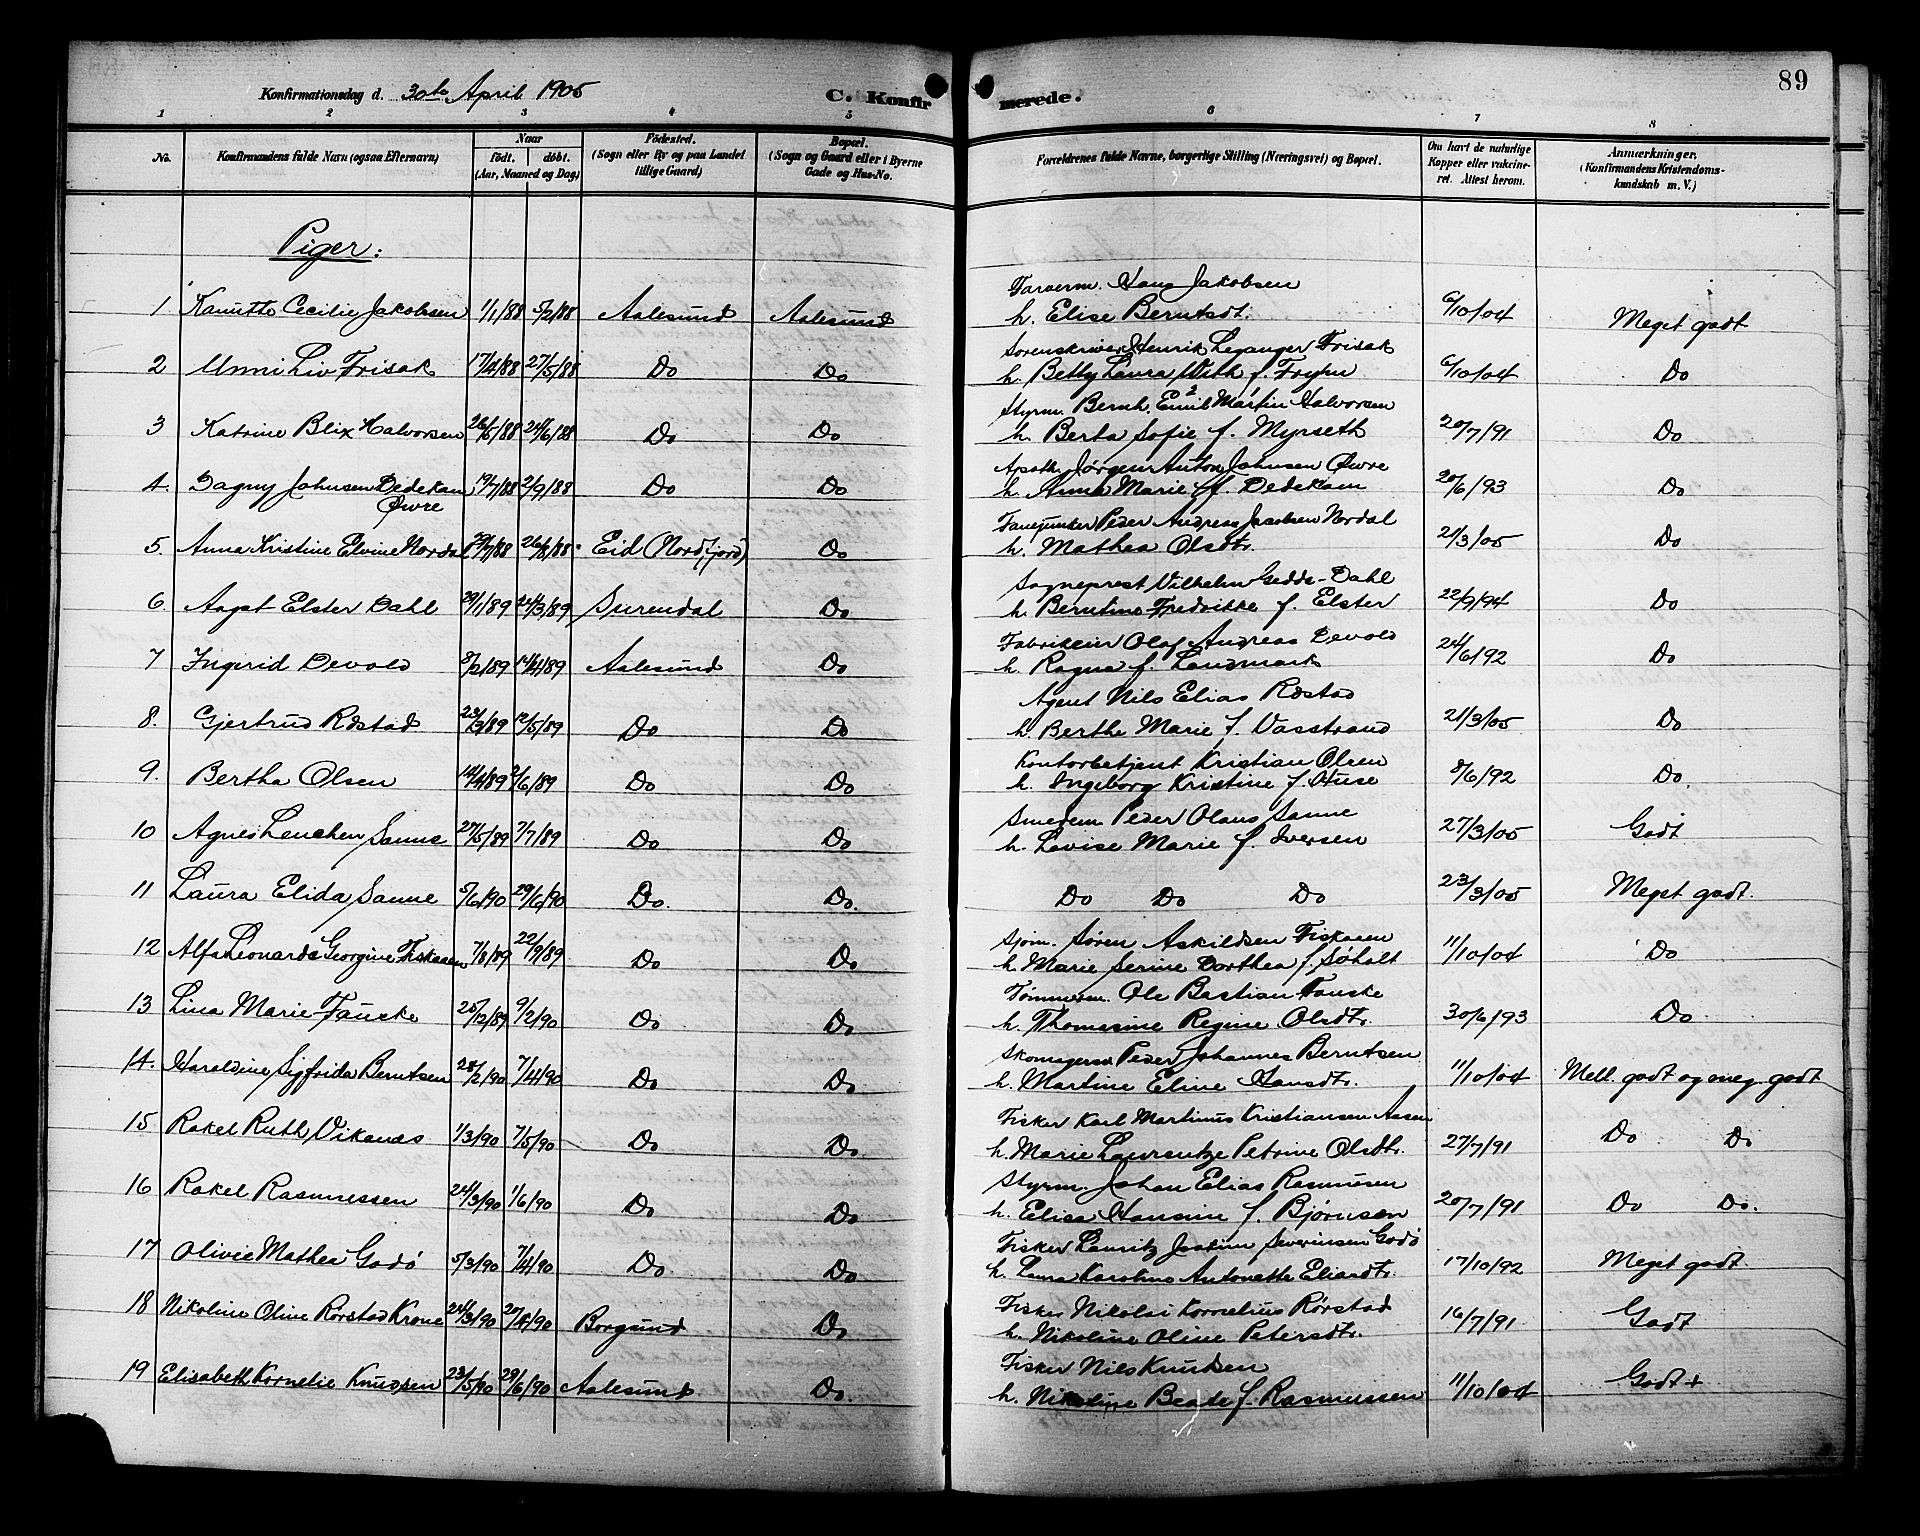 89
Konfirmationsdag d. 30te April 1905 C. Konfirmerede.
1 2 3 4 5 6 7 8
No. Konfirmandens fulde Navn (ogsaa Efternavn) Naar født. døbt. (Aar, Maaned og Dag) Fødested. (Sogn eller By og paa Landet tillige Gaard) Bopæl. (Sogn og Gaard eller i Byerne Gade og Hus-No. Forældrenes fulde Navne, borgerlige Stilling (Næringsvei) og Bopæl. Om havt de naturlige Kopper eller vakcineret. Attest herom. Anmærkninger. (Konfirmandens Kristendomskundskab m. V.)
Piger:
Farverm. Hans Jakobsen
1 Kanutte Cecilie Jakobsen 1/1/88 5/2/88 Aalesund Aalesund h. Elise Berntsdt. 6/10/04 Meget godt
Sorenskriver Henrik Leganger Frisak
2 Unni Liv Frisak 17/4/88 27/5/88 Do Do h. Betty Laura With f. 6/10/04 Do
Styrm. Bernh. Emil Martin Halvorsen
3 Katrine Blix Halvorsen 26/5/88 24/6/88 Do Do h. Berta Sofie f. Myrseth 20/7/91 Do
Apoth. Jørgen Anton Johnsen Øwre
4. Dagny Johnsen Dedekam Øwre 2/9/88 Do Do h. Anna Marie f. Dedekam 20/6/93 Do
Fanejunker Peder Andreas Jacobsen Nordal
5. Anna Kristine Elvine Nordal 26/8/88 Eid (Nordfjord) Do h. Mathea Olsdtr. 21/3/05 Do
Sogneprest Vilhelm Gedde-Dahl
6 Aagot Elster Dahl 29/1/89 24/3/89 Surendal Do h. Berntine Fredrikke f. Elster 22/9/94 Do
Fabrikeier Olaf Andreas Devold
7 Ingerid Devold 8/2/89 14/4/89 Aalesund Do h. Ragna f. Landmark 24/6/92 Do
Agent Nils Elias Ræstad
8. Gjertrud Ræstad 23/3/89 12/5/89 Do Do h. Berthe Marie f. Vasstrand 21/3/05 Do
Kontorbetjent Kristian Olsen
9. Bertha Olsen 14/4/89 2/6/89 Do Do h. Ingeborg Kristine f. Huse 8/6/92 Do
Smedem. Peder Olaus Sanne
10 Agnes Lenchen Sanne 27/5/89 7/7/89 Do Do h. Lovise Marie f. Iversen 27/3/05 Godt
11 Laura Elida Sanne 5/6/90 29/6/90 Do. Do. Do Do Do 23/3/05 Meget godt.
Sjøm. Søren Askildsen Fiskaaen
12 Alfa Leonarda Georgine Fiskaaen 7/8/89 22/9/89 Do Do h. Marie Serine Dorthea f. Søholt 11/10/04 Do
Tømmerm. Ole Bastian Fauske
13 Lina Marie Fauske 25/12/89 9/2/90 Do Do h. Thomasine Regine Olsdtr. 30/6/93 Do
Skomagerm. Peder Johannes Berntsen
14. Haraldine Sigfrida Berntsen 28/2/90 7/4/90 Do Do h. Martine Eline Hansdtr. 11/10/04 Mell. godt og meg. godt
Fisker Karl Martinus Kristiansen Aasen
15 Rakel Ruth Vikanæs 1/3/90 7/5/90 Do Do. h. Marie Laurentze Petrine Olsdtr. 27/7/91 Do Do
Styrm. Johan Elias Rasmusen
16 Rakel Rasmussen 24/3/90 1/6/90 Do Do h. Elisa Hansine f. Bjørnsen 20/7/91 Do Do.
Fisker Lauritz Jostinus Severinsen Godø
17 Olivie Mathea Godø 5/3/90 7/4/90 Do Do h. Lena Karoline Antonette Eliasdtr. 17/10/92 Meget godt
Fisker Nikolai Kornelius Rørstad
18 Nikoline Oline Rørstad Krone 24/3/90 20/4/90 Borgund Do h. Nikoline Oline Petersdtr. 16/7/91 Godt
Fisker Nils Knudsen
19 Elisabeth Kornelie Knudsen 23/5/90 29/6/90 Aalesund Do h. Nikoline Beate f. Rasmussen 11/10/04 Godt +